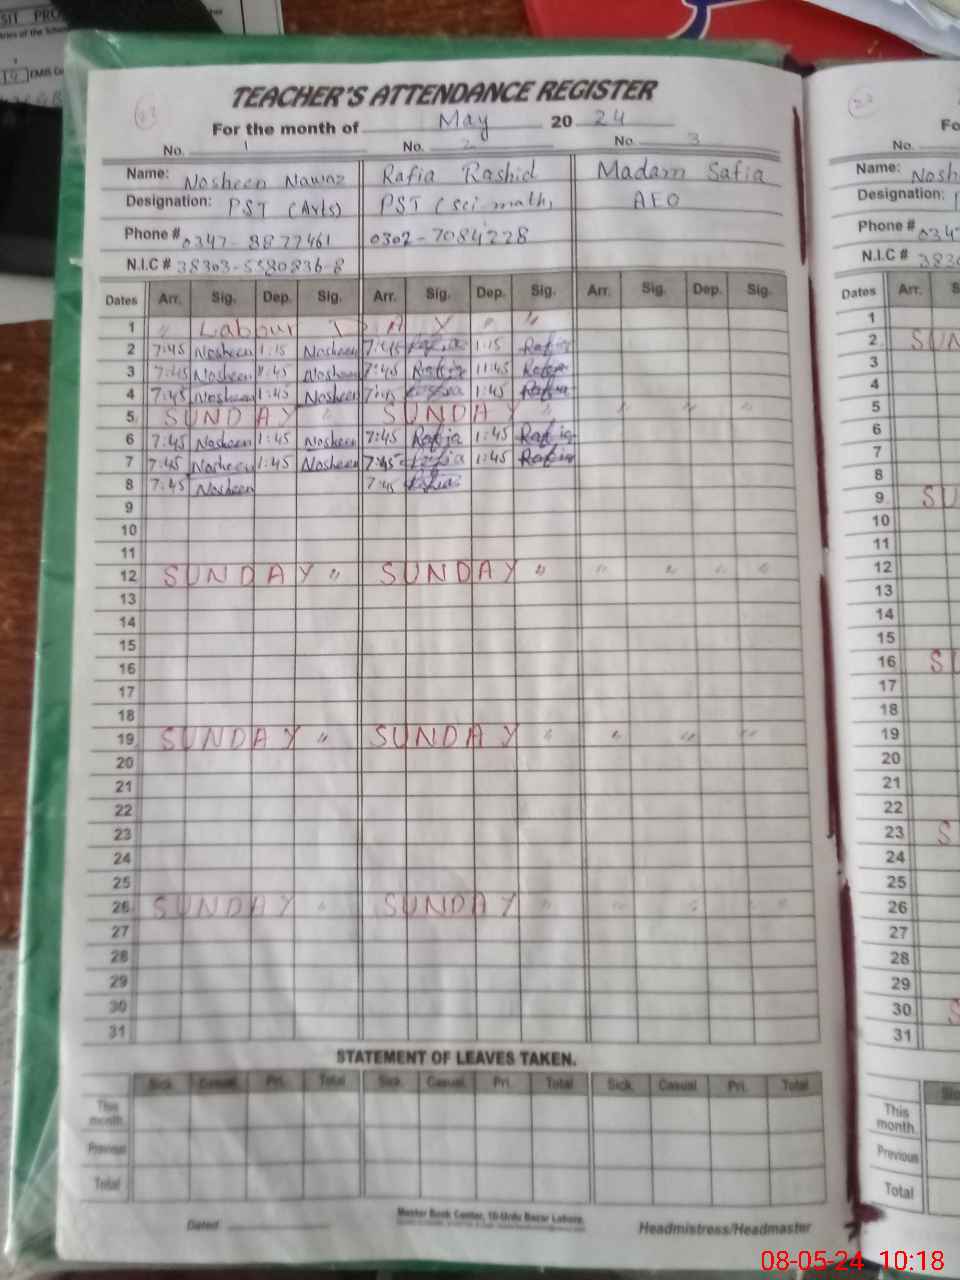 SIT PRO
TEACHER'S ATTENDANCE REGISTER
23
For the month of May 2024
No. 1 No. 2 No. 3
Name: Nosheen Nawaz Rafia Rashid Madam Safia
Designation: PST (Arts) PST (Sci math) AEO
Phone # 0347-8877461 0302-7084228
N.I.C # 38303-5580836-8
Dates Arr. Sig. Dep. Sig. Arr. Sig. Dep. Sig. Arr. Sig. Dep. Sig.
1 " Labour D A Y " "
2 7:45 Nosheen 1:15 Nosheen 7:45 Rafia 1:15 Rafia
3 7:45 Nosheen 11:45 Nosheen 7:45 Rafia 11:45 Rafia
4 7:45 Nosheen 1:45 Nosheen 7:45 Rafia 1:45 Rafia
5 SUNDAY " SUNDAY " " " " "
6 7:45 Nosheen 1:45 Nosheen 7:45 Rafia 1:45 Rafia
7 7:45 Nosheen 1:45 Nosheen 7:45 Rafia 1:45 Rafia
8 7:45 Nosheen 7:45 Rafia
9
10
11
12 SUNDAY " SUNDAY " " " " "
13
14
15
16
17
18
19 SUNDAY " SUNDAY " " " "
20
21
22
23
24
25
26 SUNDAY " SUNDAY " " " "
27
28
29
30
31
STATEMENT OF LEAVES TAKEN.
Sick. Casual. Pri. Total Sick. Casual. Pri. Total Sick. Casual Pri. Total
This month.
Previous
Total
Dated
Master Book Center, 10-Urdu Bazar Lahore.
Headmistress/Headmaster
22
Fo
No.
Name: Nosh
Designation:
Phone # 034
N.I.C # 383
Dates Arr. S
1
2 SUN
3
4
5
6
7
8
9 SU
10
11
12
13
14
15
16 SU
17
18
19
20
21
22
23 S
24
25
26
27
28
29
30 S
31
This month.
Previous
Total
08-05-24 10:18